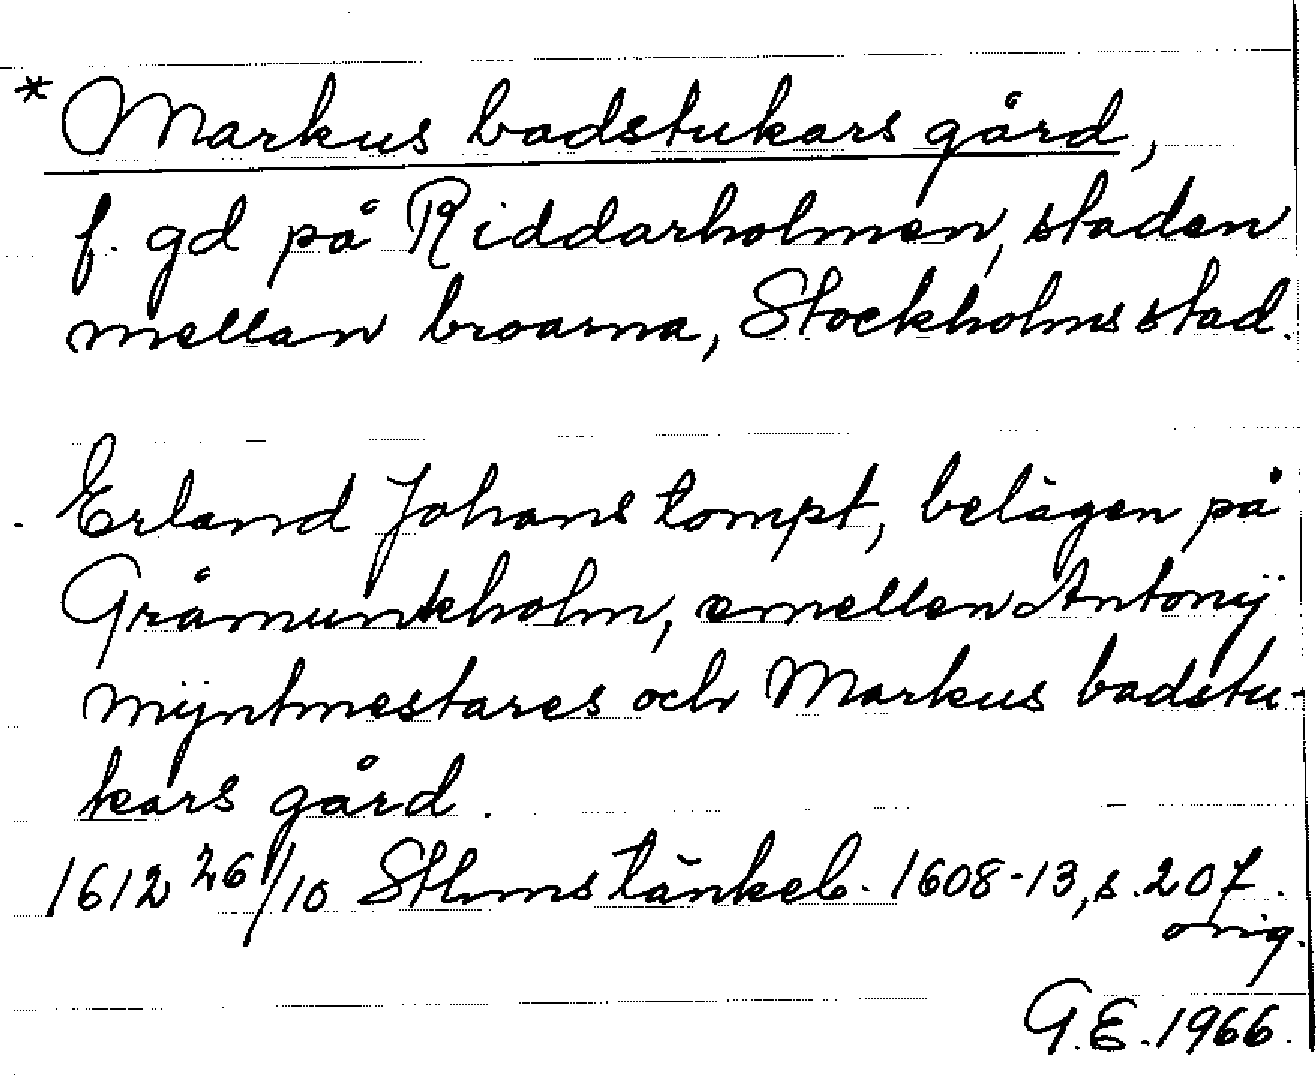 * Markus badstukars gård,
f. gd på Riddarholmen, staden
mellan broarna, Stockholms stad.
Erland Johans tompt, belägen på
Gråmunkeholm, emellen Antonÿ
mÿntmestares och Markus badstu-
kars gård.
1612 26/10 Sthms tänkeb. 1608-13, s. 207.
orig.
G.E. 1966.